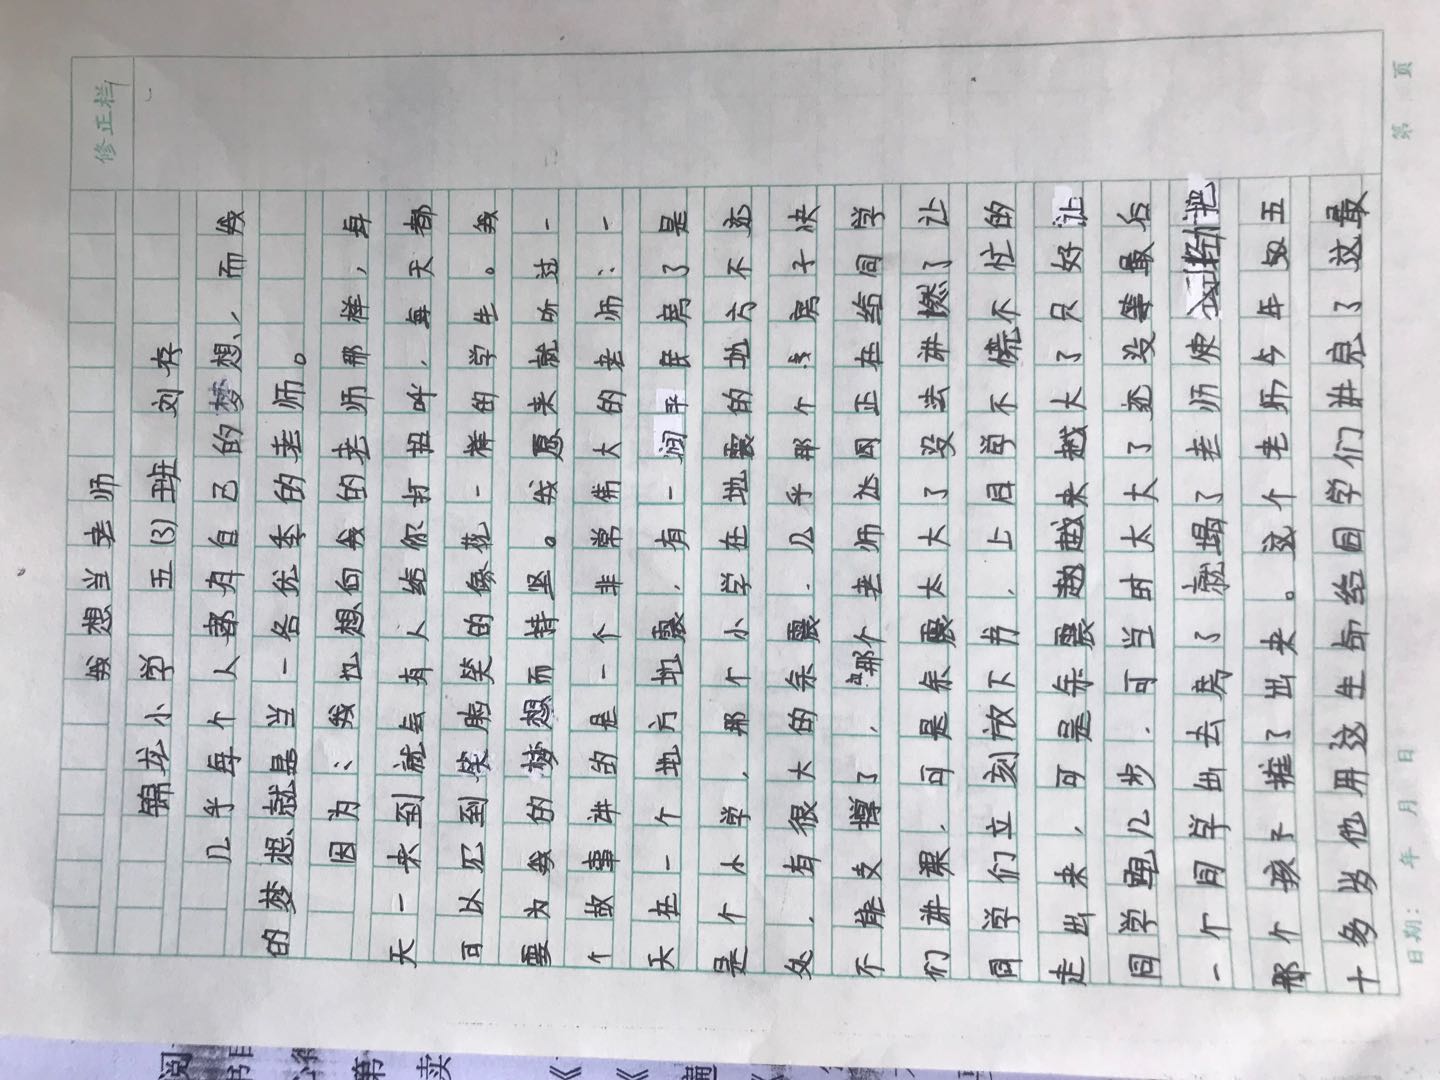 修正栏
我想当老师
锦龙小学 五(3)班 刘存
几乎每个人都有自己的梦想、，而我
的梦想就是当一名优秀的老师。
因为：我也想向我的老师那样，每
天一来到就会有人给你打招呼，每天都
可以见到笑脸笑的像花一样的学生。我
要为我的梦想而持坚。我愿来就听过一
个故事讲的是一个非常伟大的老师：一
天在一个地方地震，有一间平房了是
是个小学，那个小学在地震的地方不远
处，有很大的余震，几乎那个房子快
不能支撑了，那个老师还因正在给同学
们讲课，可是余震太大了没去讲燃了让
同学们立刻放下书，上同学不慌不忙的
走出来，可是余震越越来越大了只好让
同学跑几步，可当时太大了还没等最后
一个同学出去房了就塌了老师使 把
那个孩子推了出来。这个老师今年奴五
十多岁他用这生命给同学们讲完了这最
日期： 年 月 日
第 页
阅
书目
第
卖
《
《
篇